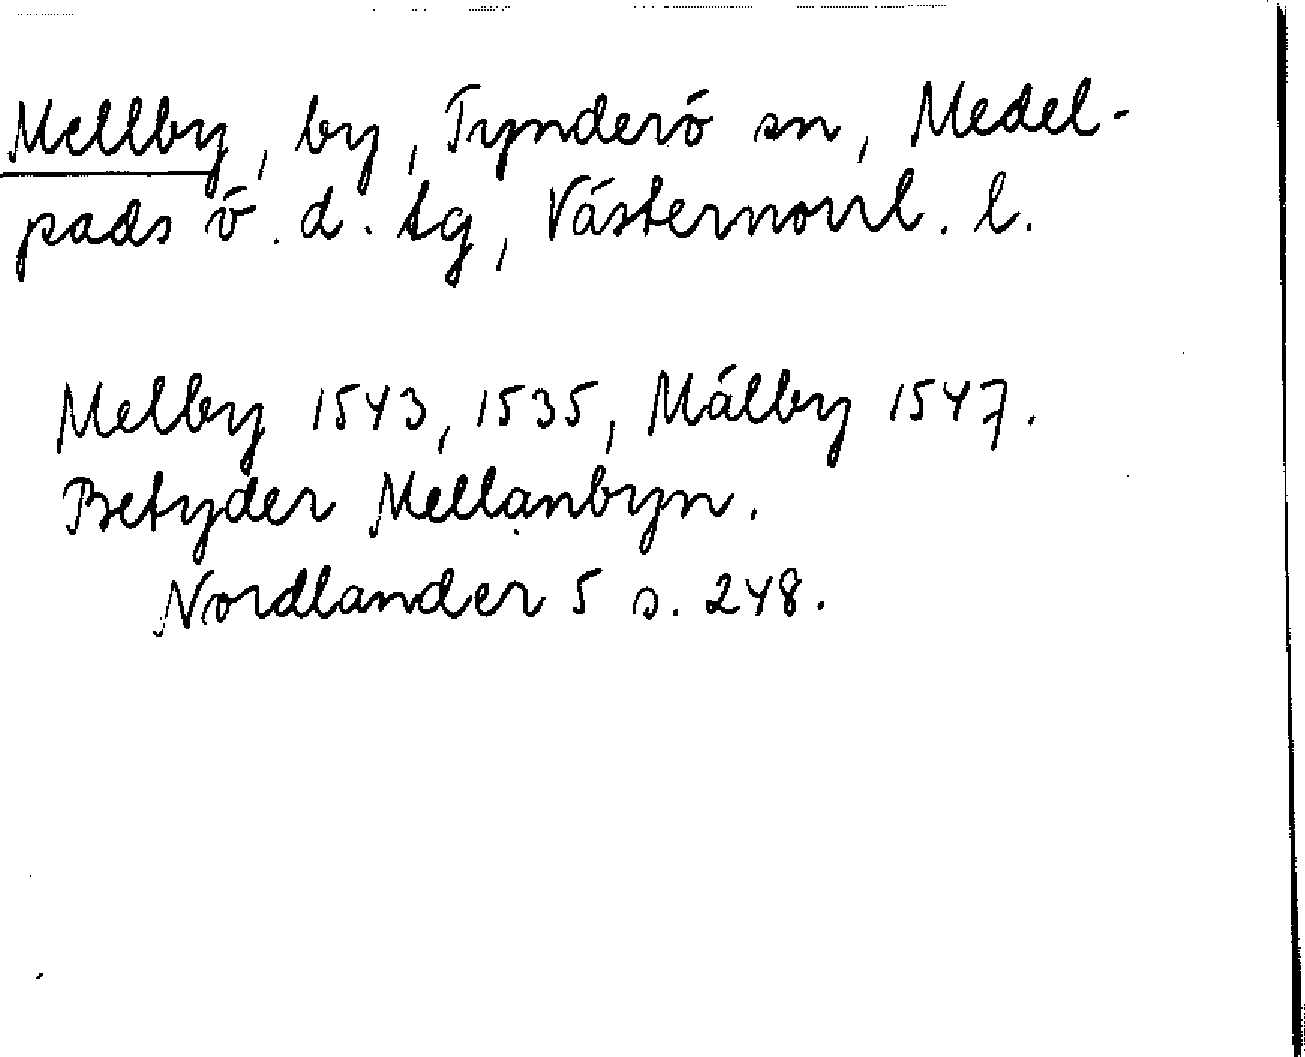 Mellby, by, Tynderö sn, Medel-
pads ö. d. tg, Västernorrl. l.
Melby 1543, 1535, Mälby 1547.
Betyder Mellanbyn.
Nordlander 5 s. 248.